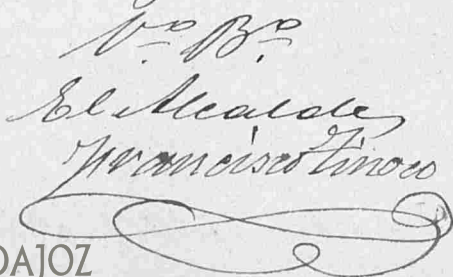 V.º B.º
El Alcalde,
Francisco Tinoco
DAJOZ